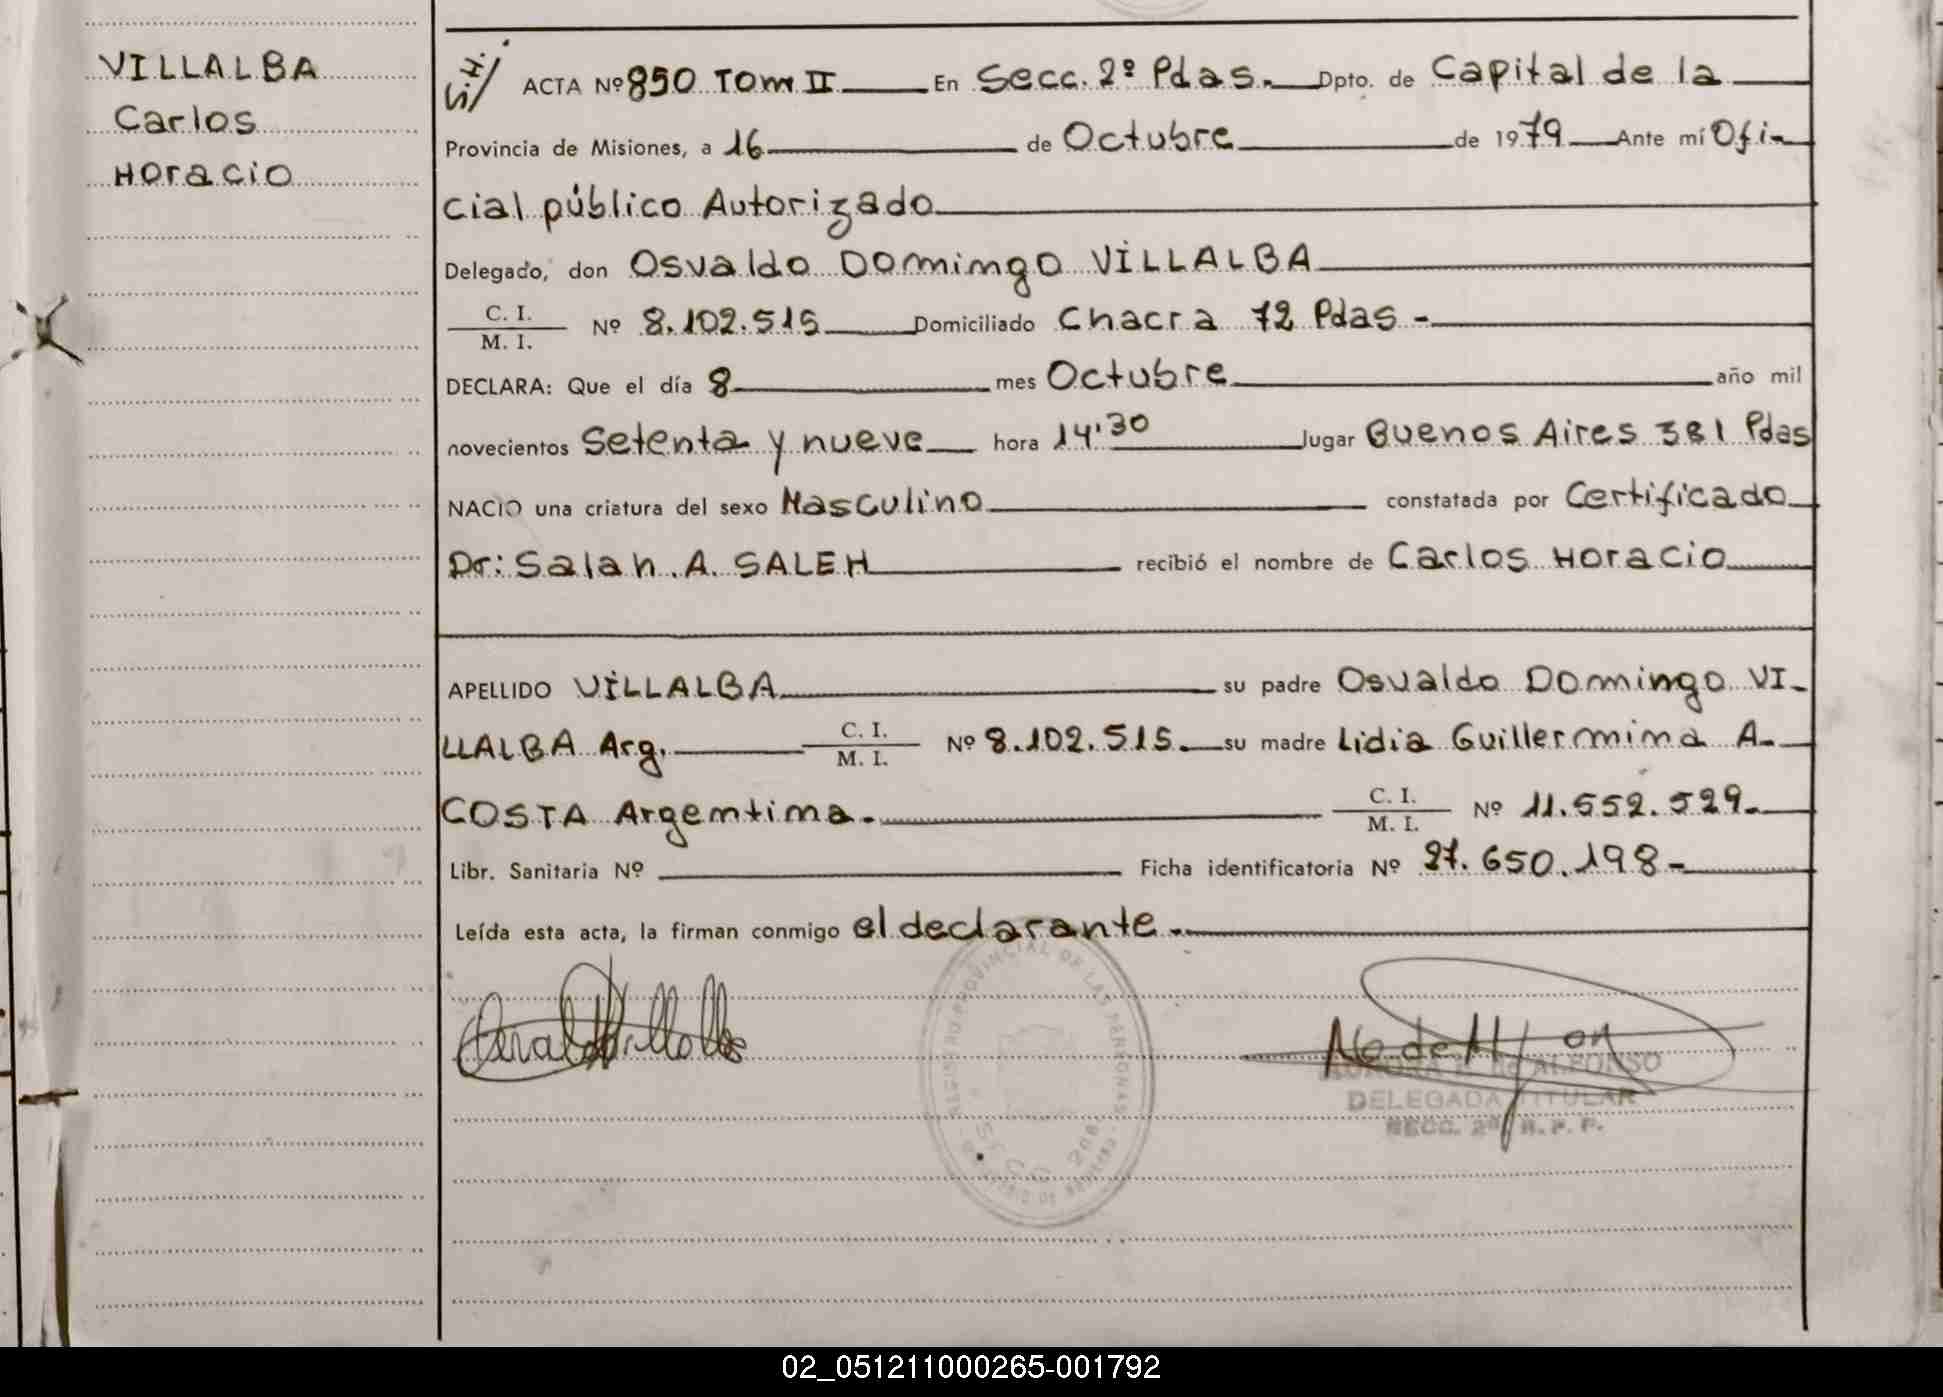 VILLALBA
Carlos
Horacio
ACTA Nº 850 Tom II En Secc. 2º Pdas. Dpto. de Capital de la
Provincia de Misiones, a 16 de Octubre de 1979 Ante mí Ofi-
cial público Autorizado
Delegado, don Osvaldo Domingo VILLALBA
C. I.
M. I. Nº 8.102.515 Domiciliado Chacra 72 Pdas -
DECLARA: Que el día 8 mes Octubre año mil
novecientos Setenta y nueve hora 14'30 lugar Buenos Aires 381 Pdas
NACIO una criatura del sexo Masculino constatada por Certificado
Dr: Salah. A. SALEH recibió el nombre de Carlos Horacio
APELLIDO VILLALBA su padre Osvaldo Domingo VI-
LLALBA Arg. C. I. M. I. Nº 8.102.515. su madre Lidia Guillermina A-
COSTA Argentina. C. I. M. I. Nº 11.552.529.
Libr. Sanitaria Nº Ficha identificatoria Nº 27.650.198-
Leída esta acta, la firman conmigo el declarante.
REGISTRO PROVINCIAL DE LAS PERSONAS
AURORA de ALFONSO
DELEGADA TITULAR
SECC. 2ª R. P. P.
02_051211000265-001792